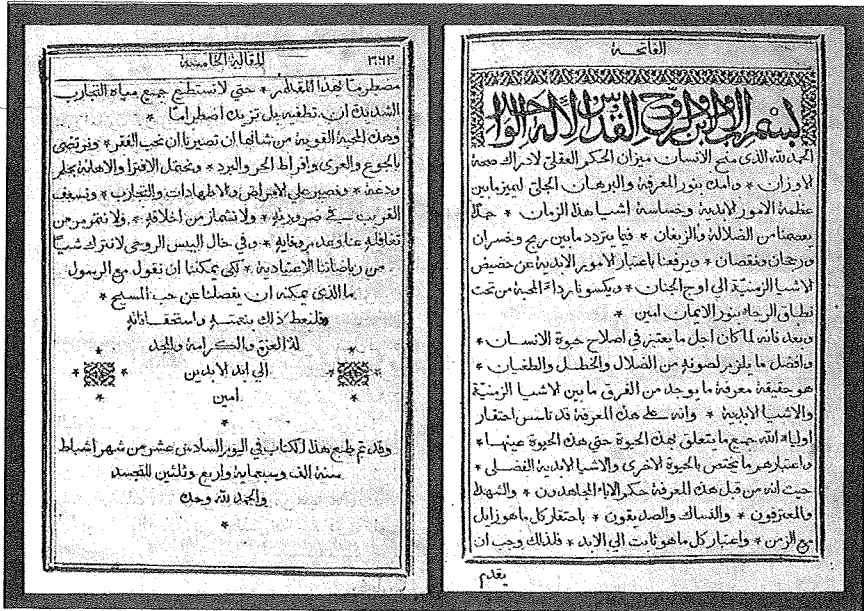 الفاتحة
بسم الاب والابن والروح القدس الاله الواحد
الحمد لله الذي منح الانسان ميزان الحكم العقلي لادراك صحة
الاوزان * وامده بنور المعرفة والبرهان الجلي لتميز ما بين
عظمة الامور الابدية وخساسة اشيا هذا الزمان *
يعصمنا من الضلالة والزيغان * فيما يتردد ما بين ربح وخسران
ورجحان ونقصان * ويرفعنا باعتبار الامور الابدية عن حضيض
الاشيا الزمنية الي اوج الجنان * ويكسونا رداء المحبة من تحت
نطاق الرجاء بنور الايمان امين *
وبعد فانه لما كان اجل ما يعتبر في اصلاح حيوة الانسان *
وافضل ما يلزم لصونه من الضلال والخطل والطغيان *
هو حقيقة معرفة ما يوجد من الفرق ما بين الاشيا الزمنية
والاشيا الابدية * وانه علي هذه المعرفة قد تاسس احتقار
اولياء الله جميع ما يتعلق بهذه الحيوة حتي هذه الحيوة عينها *
واعتبارهم ما يختص بالحيوة الاخري والاشيا الابدية الفضلي *
حيث انه من قبل هذه المعرفة حكم الاباء المجاهدون * والشهدا
والمعترفون * والنساك والصديقون * باحتقار كل ما هو زايل
مع الزمن * واعتبار كل ما هو ثابت الي الابد * فلذلك وجب ان
يقدم
المقالة الخامسة ٣٦٢
مضطرمًا بهذا المقدار * حتي لا تستطيع جميع مياه التجارب
الشديدة ان تطفيه بل تزيده اضطرامًا *
وهذه المحبة القوية من شانها ان تصيرنا ان نحب الفقر * ونرتضي
بالجوع والعري وافراط الحر والبرد * ونحتمل الافترا والاهانة بحلم
ودعة * ونصبر علي الامراض والاطهادات والتجارب * ونسعف
القريب في ضروريته * ولا نشماز من اخلاقه * ولا نتمرمر من
تغافله عنا وعدم وفايه * وفي حال اليبس الروحي لا نترك شيا
من رياضاتنا الاعتيادية * لكي يمكننا ان نقول مع الرسول
ما الذي يمكنه ان يفصلنا عن حب المسيح *
فلنعط ذلك بنعمته واستحقاقاته
له العزة والكرامة والمجد
الي ابد الابدين
امين
وقد تم طبع هذا الكتاب في اليوم السادس عشر من شهر اشباط
سنة الف وسبعماية واربع وثلثين للتجسد
والحمد لله وحده